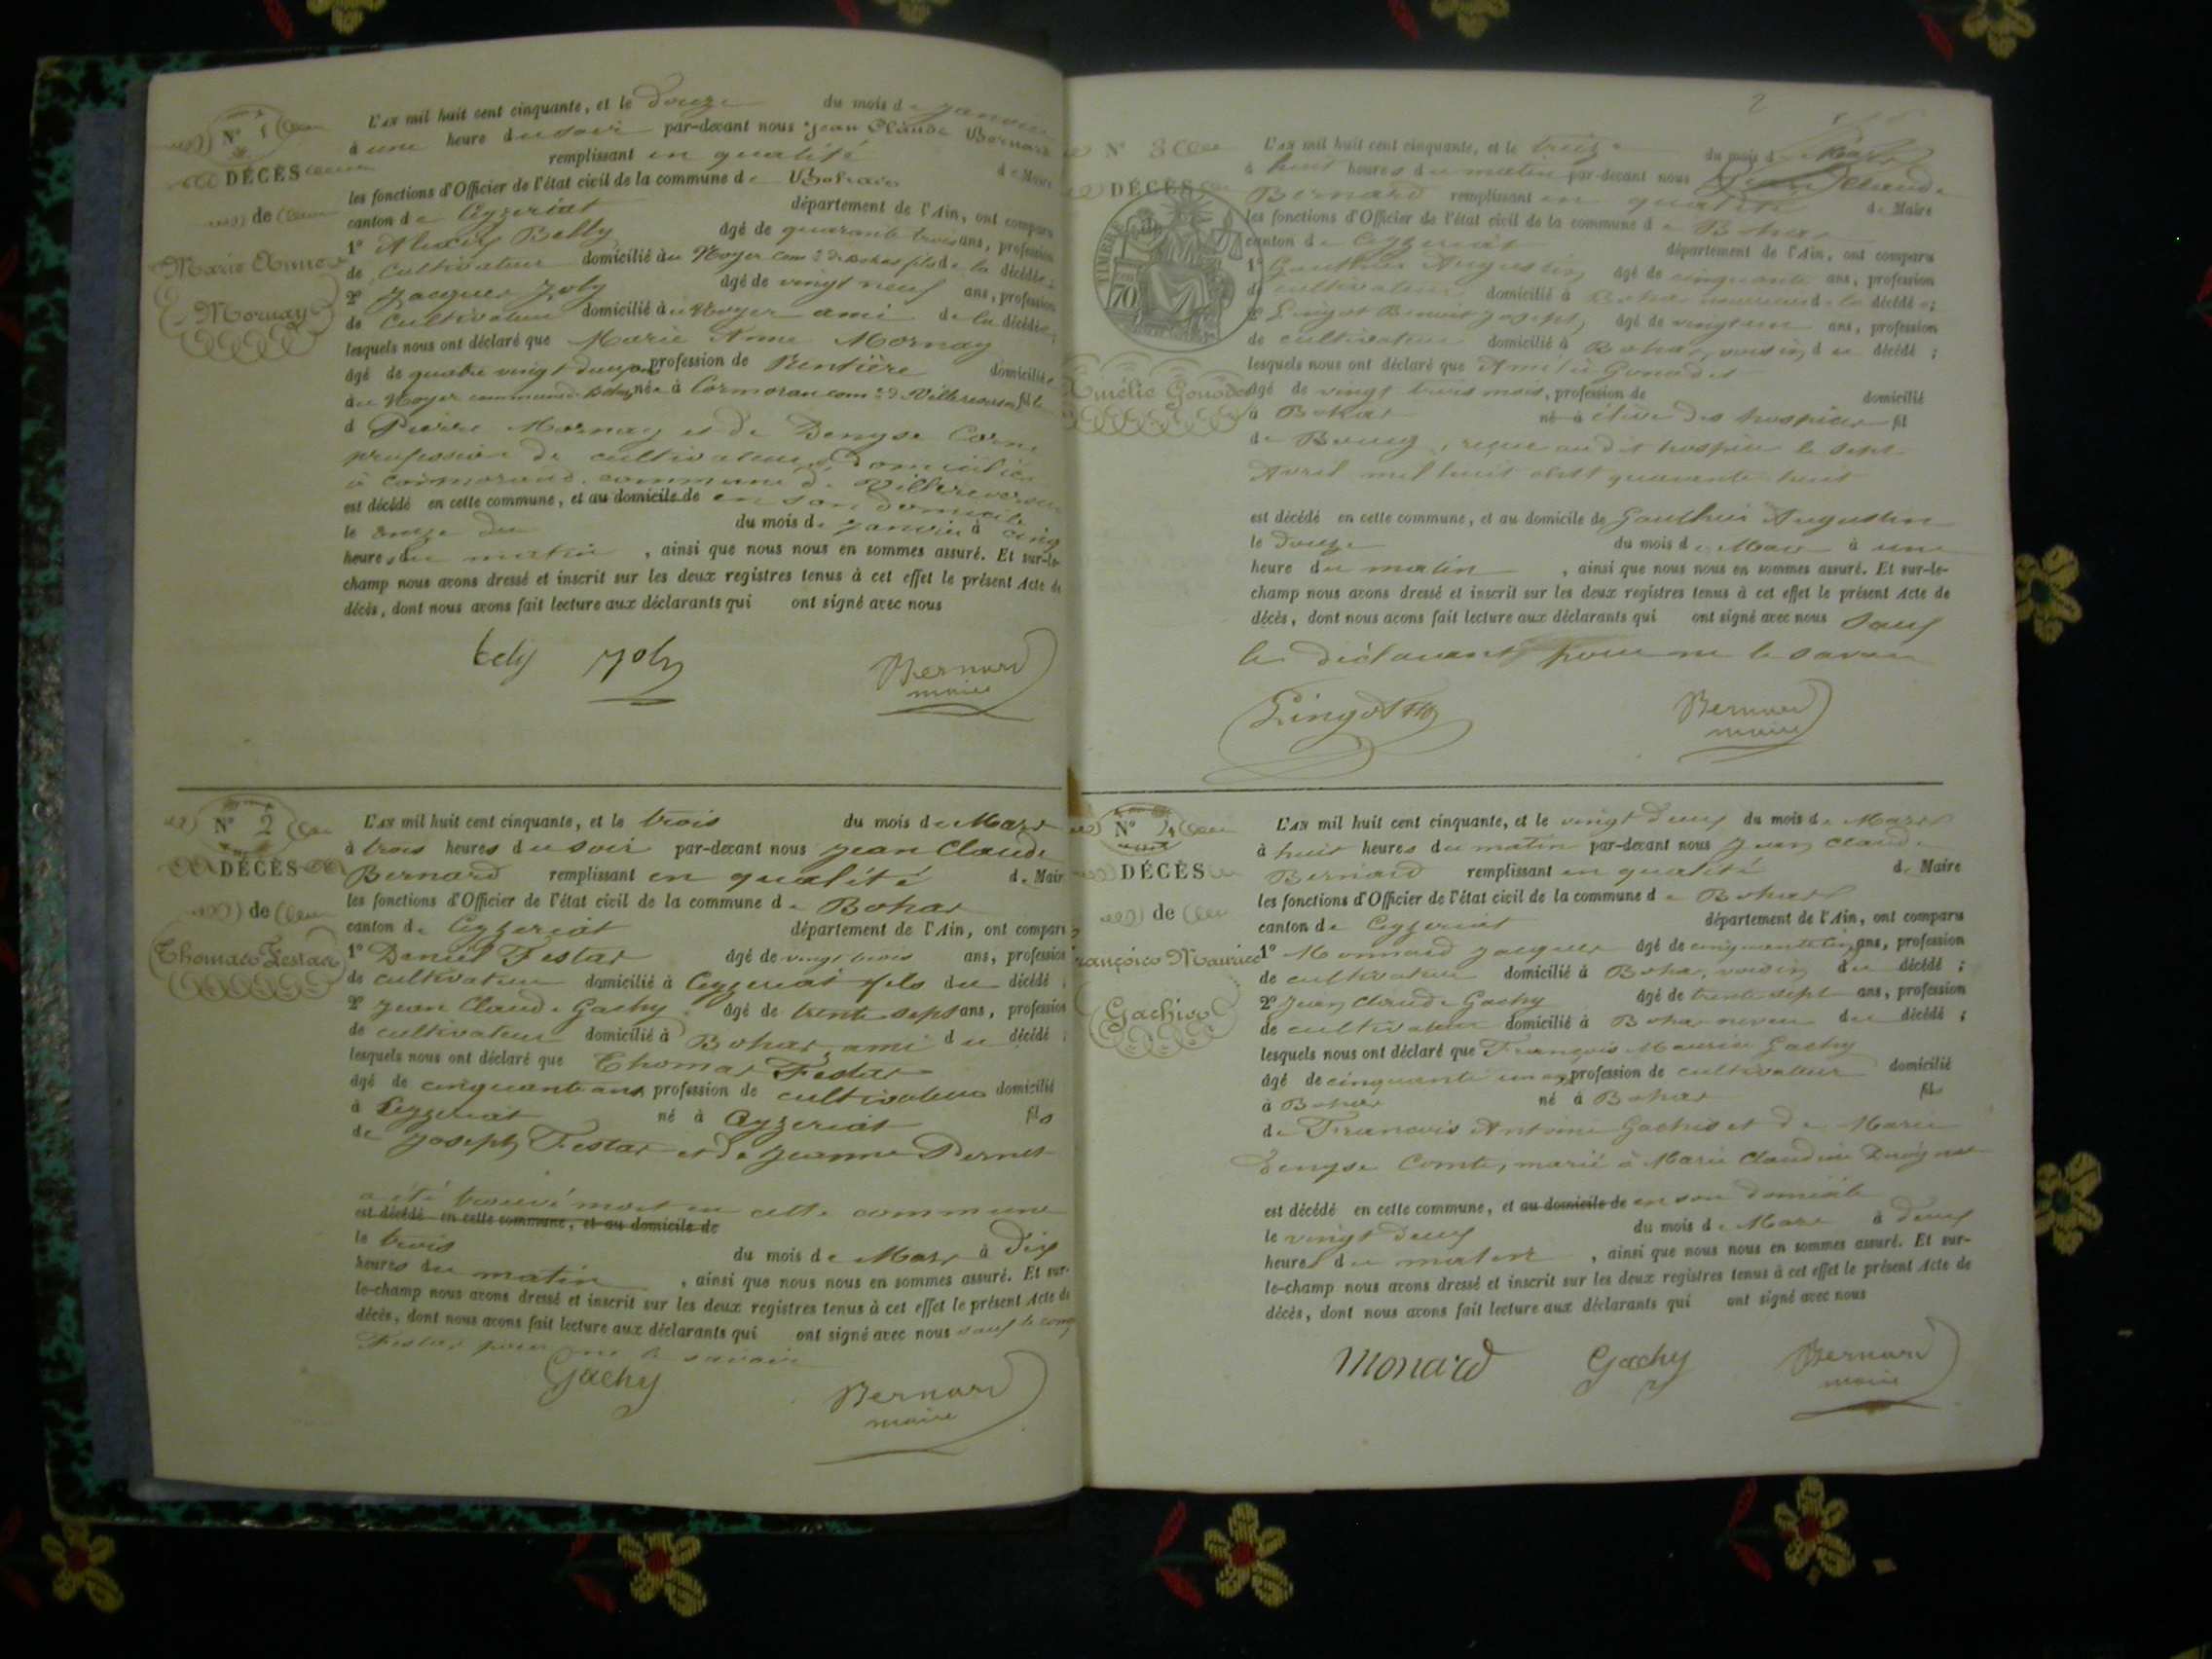 N° 1
DÉCÈS
de
Marie Anne
Mornay
L'AN mil huit cent cinquante, et le douze du mois de Janvier
à une heure du soir par-devant nous Jean Claude Bernard
remplissant en qualité de Maire
les fonctions d'Officier de l'état civil de la commune de Bohas
canton de Ceyzeriat département de l'Ain, ont comparu
1° Alexis Belly âgé de quarante trois ans, profession
de cultivateur domicilié au Noyer com.ne de Bohas fils de la décédée;
2° Jacques Joly âgé de vingt neuf ans, profession
de cultivateur domicilié au Noyer ami de la décédée;
lesquels nous ont déclaré que Marie Anne Mornay
âgé de quatre vingt deux ans profession de Rentière domiciliée
au Noyer commune de Bohas née à Cormoran com.ne de Villereversure fille
de Pierre Mornay et de Denyse
profession de cultivateurs domiciliés
à Cormorand commune de Villereversure
est décédé en cette commune, et au domicile de en son domicile
le onze du du mois de Janvier à cinq
heures du matin, ainsi que nous nous en sommes assuré. Et sur-le-
champ nous avons dressé et inscrit sur les deux registres tenus à cet effet le présent Acte de
décès, dont nous avons fait lecture aux déclarants qui ont signé avec nous
Joly Bernard
maire
N° 2
DÉCÈS
de
Thomas Festas
L'AN mil huit cent cinquante, et le trois du mois de Mars
à trois heures du soir par-devant nous Jean Claude
Bernard remplissant en qualité de Maire
les fonctions d'Officier de l'état civil de la commune de Bohas
canton de Ceyzeriat département de l'Ain, ont comparu
1° Daniel Festas âgé de vingt trois ans, profession
de cultivateur domicilié à Ceyzeriat fils du décédé;
2° Jean Claude Gachy âgé de trente sept ans, profession
de cultivateur domicilié à Bohas, ami du décédé;
lesquels nous ont déclaré que Thomas Festas
âgé de cinquante ans profession de cultivateur domicilié
à Ceyzeriat né à Ceyzeriat fils
de Joseph Festas et de Jeanne Pernet
a été trouvé mort en cette commune
est décédé en cette commune, et au domicile de
le trois du mois de Mars à dix
heures du matin, ainsi que nous nous en sommes assuré. Et sur-
le-champ nous avons dressé et inscrit sur les deux registres tenus à cet effet le présent Acte de
décès, dont nous avons fait lecture aux déclarants qui ont signé avec nous sauf le
Festas pour ne le savoir
Gachy Bernard
maire
2
N° 3
DÉCÈS
TIMBRE
70
Amélie Gonodet
L'AN mil huit cent cinquante, et le treize du mois de Mars
à huit heures du matin par-devant nous Jean Claude
Bernard remplissant en qualité de Maire
les fonctions d'Officier de l'état civil de la commune de Bohas
canton de Ceyzeriat département de l'Ain, ont comparu
1° Gauthier Augustin âgé de cinquante ans, profession
de cultivateur domicilié à Bohas de la décédée;
2° Lingot Benoit Joseph âgé de ans, profession
de cultivateur domicilié à Bohas, voisin du décédé;
lesquels nous ont déclaré que Amélie Gonodet
âgé de vingt trois mois, profession de domicilié
à Bohas né à élève des hospices fil
de Bourg, reçue au dit hospice le sept
Avril mil huit cent quarante huit
est décédé en cette commune, et au domicile de Gauthier Augustin
le douze du mois de Mars à une
heure du matin, ainsi que nous nous en sommes assuré. Et sur-le-
champ nous avons dressé et inscrit sur les deux registres tenus à cet effet le présent Acte de
décès, dont nous avons fait lecture aux déclarants qui ont signé avec nous sauf
le déclarant pour ne le savoir
Lingot Bernard
maire
N° 4
DÉCÈS
de
François Maurice
Gachy
L'AN mil huit cent cinquante, et le vingt deux du mois de Mars
à huit heures du matin par-devant nous Jean Claude
Bernard remplissant en qualité de Maire
les fonctions d'Officier de l'état civil de la commune de Bohas
canton de Ceyzeriat département de l'Ain, ont comparu
1° Monnard Jacques âgé de cinquante cinq ans, profession
de cultivateur domicilié à Bohas, voisin du décédé;
2° Jean Claude Gachy âgé de trente sept ans, profession
de cultivateur domicilié à Bohas neveu du décédé;
lesquels nous ont déclaré que François Maurice Gachy
âgé de cinquante un ans profession de cultivateur domicilié
à Bohas né à Bohas fils
de François Antoine Gachy et de Marie
Denyse Comte, marié à Marie Claudine
est décédé en cette commune, et au domicile de en son domicile
le vingt deux du mois de Mars à deux
heures du matin, ainsi que nous nous en sommes assuré. Et sur-
le-champ nous avons dressé et inscrit sur les deux registres tenus à cet effet le présent Acte de
décès, dont nous avons fait lecture aux déclarants qui ont signé avec nous
Monard Gachy Bernard
maire